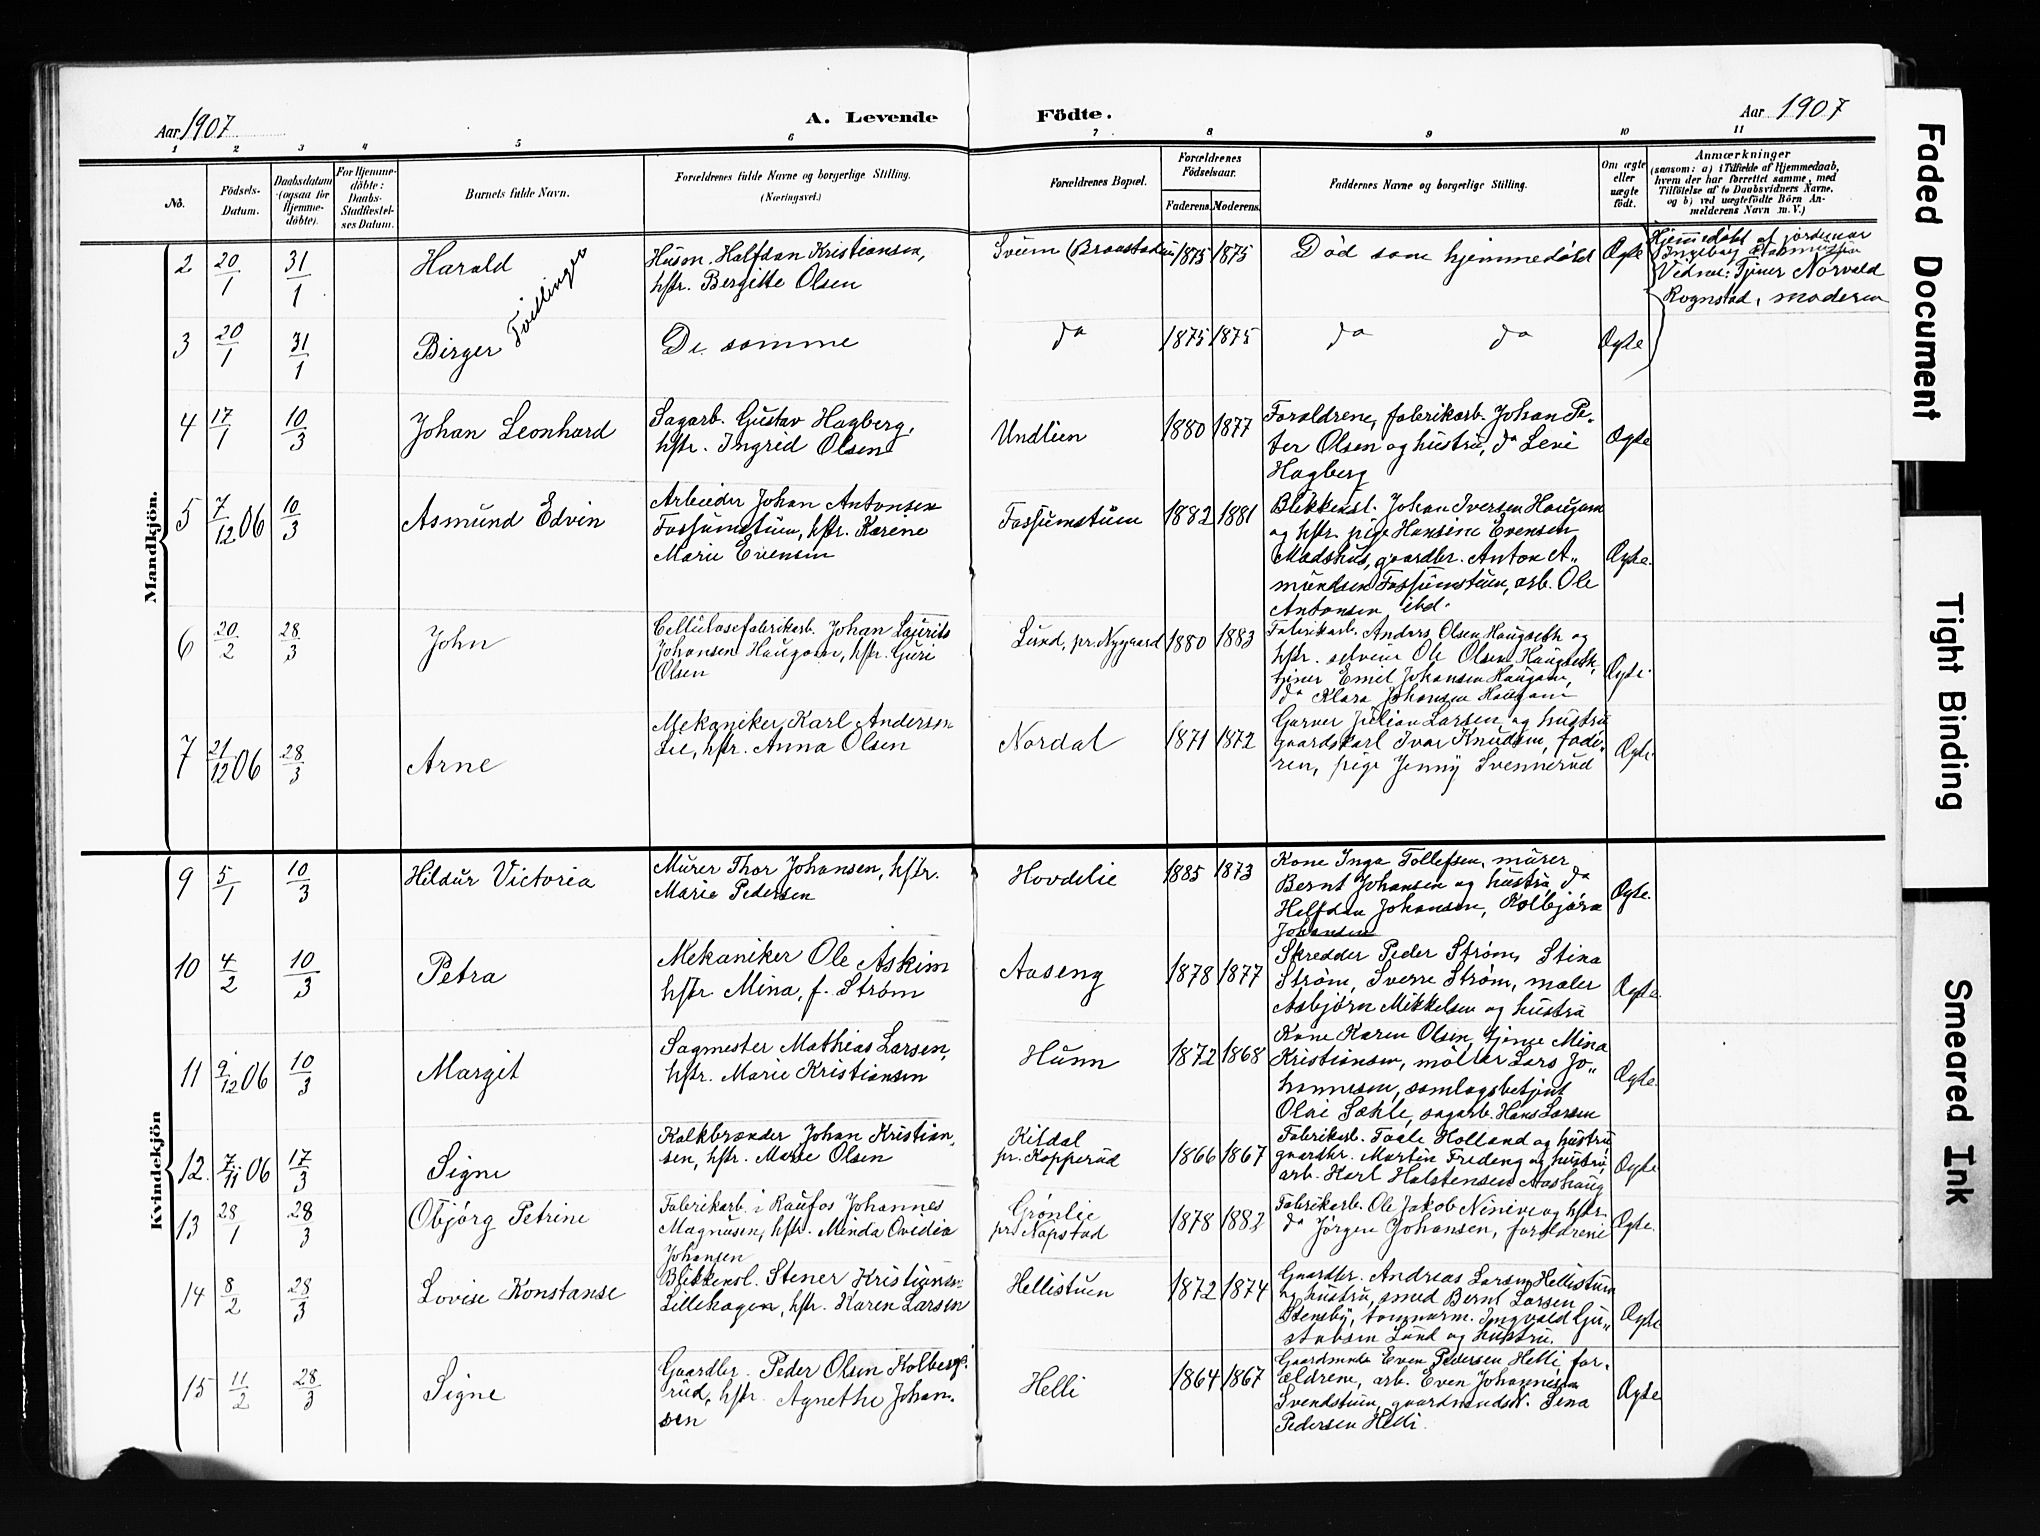 Aar 1907
A. Levende Födte.
Aar 1907
1 2 3 4 5 6 7 8 9 10 11
No.
Födsels-
Datum.
Daabsdatum
(ogsaa for
Hjemme-
döbte).
For Hjemme-
döbte:
Daabs-
Stadfæstel-
ses Datum.
Barnets fulde Navn.
Forældrenes fulde Navne og borgerlige Stilling.
(Næringsvei.)
Forældrenes Bopæl.
Forældrenes
Födselsaar.
Faderens. Moderens.
Faddernes Navne og borgerlige Stilling.
Om ægte
eller
uægte
födt.
Anmærkninger
(saasom: a) i Tilfælde af Hjemmedaab,
hvem der har forrettet samme, med
Tilföielse af to Daabsvidners Navne.
og b) ved uægtefödte Börn An-
melderens Navn m. V.)
Mandkjön.
2 20/1 31/1 Harald
Tvillinger
Husm. Halfdan Kristiansen,
hstr. Bergitte Olsen
Sveum 1875 1875
Død som hjemmedøbt
Ægte
Hjemmedøbt af jordemor
Ingeborg
Vidner: Tjener Norvald
Rognstad, moderen
3 20/1 31/1 Birger
De samme
do 1875 1875 do do Ægte
4 17/1 10/3 Johan Leonhard
Sagarb. Gustav Hagberg,
hstr. Ingrid Olsen
Undlien 1880 1877
Forældrene, fabrikarb. Johan Pe-
ter Olsen og hustru, do Levi
Hagberg
Ægte
5 7/12 06 10/3 Asmund Edvin
Arbeider Johan Antonsen
Fossumstuen, hstr. Karene
Marie Evensen
Fossumstuen 1882 1881
Blikkensl. Johan Iversen Haugom
og hstr. pige Hansine Evensen
Madshus, gaardbr. Anton A-
mundsen Fossumstuen, arb. Ole
Antonsen ibd.
Ægte.
6 20/2 28/3 John
Cellulosefabrikarb. Johan Laurits
Johansen Haugom, hstr. Guri
Olsen
Lund, pr. Nygaard 1880 1883
Fabrikarb. Anders Olsen Haugseth og
hstr. Ole Olsen Haugseth,
tjener Emil Johansen Haugom,
do Klara Johansen Haugom
Ægte.
7 21/12 06 28/3 Arne
Mekaniker Karl Andersen
Lie, hstr. Anna Olsen
Nordal 1871 1872
Garver Julian Larsen og hustru
gaardskarl Ivar Knudsen, fade-
ren, pige Jenny Svennerud
Ægte.
Kvindekjön
9 5/1 10/3 Hildur Victoria
Murer Thor Johansen, hstr.
Marie Pedersen
Hovdelie 1885 1873
Kone Inga Tollefsen, murer
Bernt Johansen og hustru, do
Halfdan Johansen, Kolbjørn
Johansen
Ægte.
10 4/2 10/3 Petra
Mekaniker Ole Askim
hstr Mina, f. Strøm
Aaseng 1878 1877
Skredder Peder Strøm, Stina
Strøm, Sverre Strøm, maler
Asbjørn Mikkelsen og hustru
Ægte.
11 9/12 06 10/3 Margit
Sagmester Mathias Larsen,
hstr. Marie Kristiansen
Hunn 1872 1868
Kone Karen Olsen, tjener Mina
Kristiansen, møller Lars Jo-
hannesen, samlagsbetjent
Olai Sæhle, sagarb. Hans Larsen
Ægte.
12. 7/11 06 17/3 Signe
Kalkbrænder Johan Kristian-
sen, hstr. Marie Olsen
Kildal
pr. Kopperud
1866 1867
Fabrikarb. Holland og hustru
gaardbr. Martin Fredeng og hustru,
arb. Karl Halstensen Aashaug
Ægte
13 28/1 28/3 Objørg Petrine
Fabrikarb. i Raufos Johannes
Magnusen, hstr. Minda Ovidia
Johansen
Grønlie
pr. Nøpstad
1878 1882
Fabrikarb. Ole Jakob Ninive og hstr.
do Jørgen Johansen, forældrene
Ægte.
14 8/2 28/3 Lovise Konstanse
Blikkensl. Stener Kristiansen
Lillehagen, hstr. Karen Larsen
Hellistuen 1872 1874
Gaardbr. Andreas Larsen Hellistuen
og hustru, smed Bernt Larsen
Stensby, tømmerm. Ingvald Gu-
stavsen Lund og hustru.
Ægte
15 11/2 28/3 Signe
Gaardbr. Peder Olsen Kolbergs-
rud, hstr. Agnethe Johan-
sen
Helli 1864 1867
Gaardmand Even Pedersen Helli, for-
ældrene, arb. Even Johannesen
Svendstuen, gaardmandsd. Lina
Pedersen Helli.
Ægte
Faded Document
Tight Binding
Smeared Ink